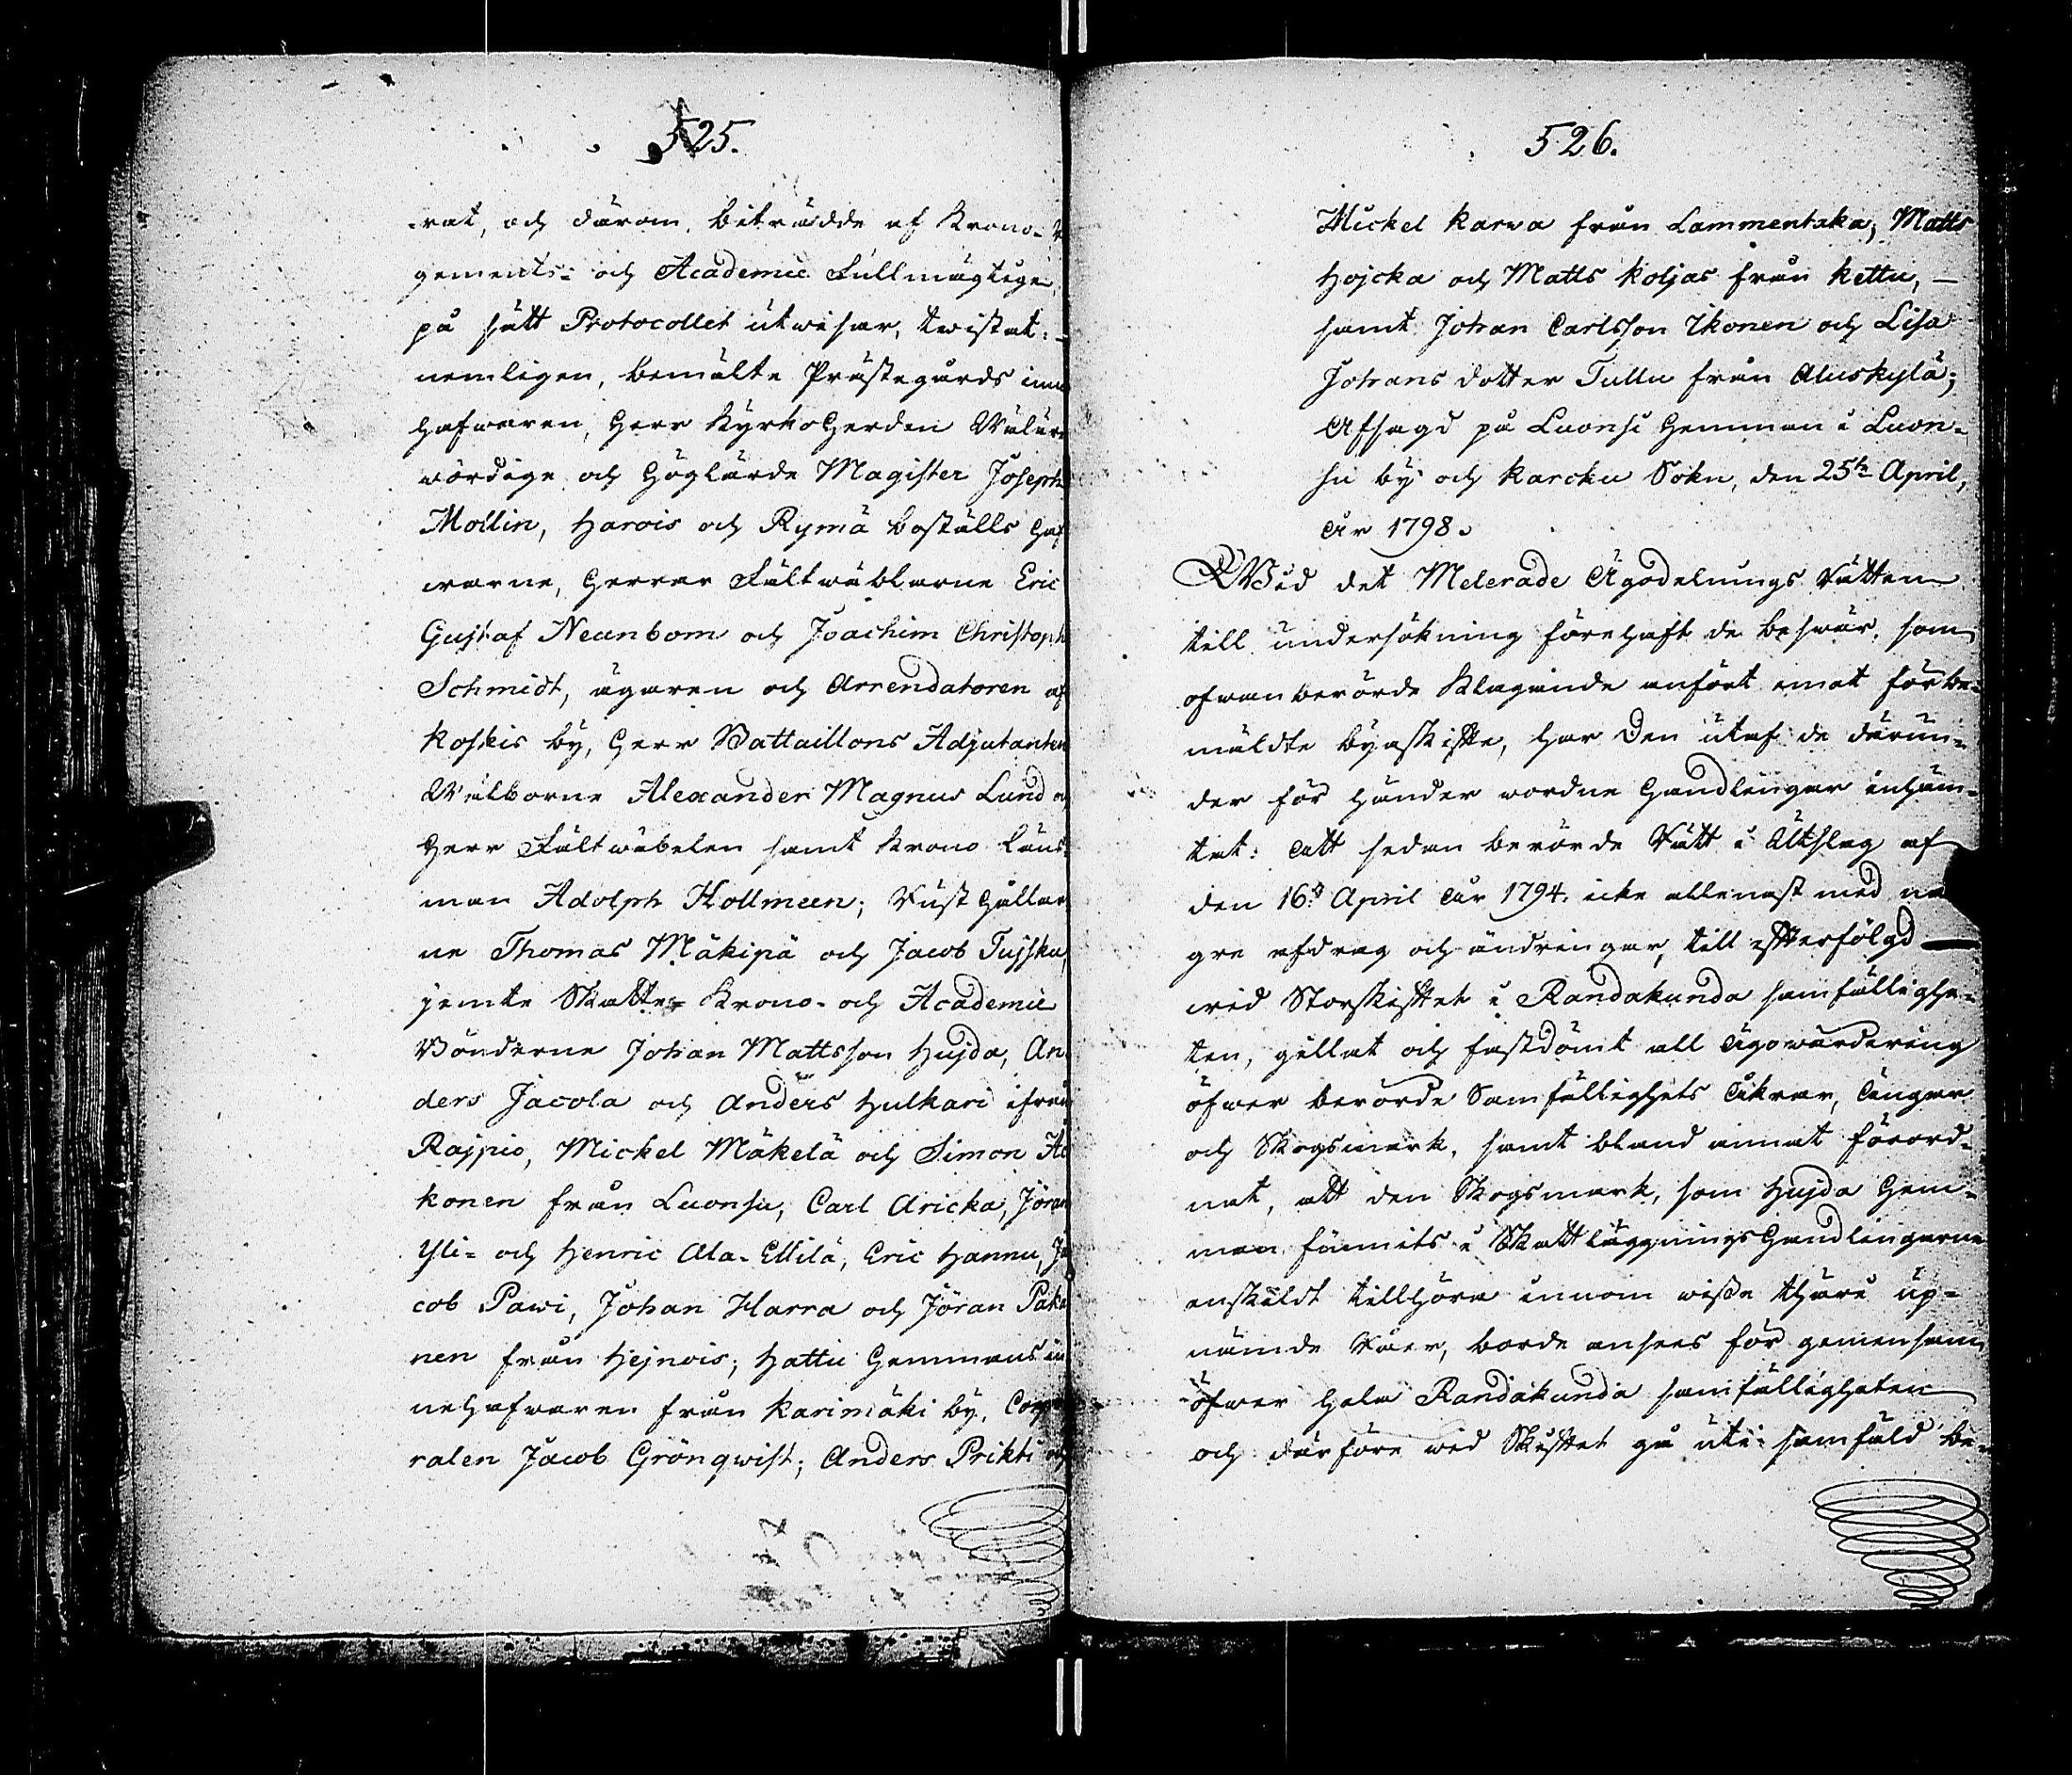 525.
-rat, och därom, biträdde af Krono-
gements- och Academie Fullmägtige,
på sätt Protocollet utwisar, twistat:-
nemligen, bemälte Prästegårds inne
hafwaren, Herr KyrkoHerden Wälärе
wördige och Höglärde Magister Joseph
Mollin, Harois och Rymä boställs Haf
warne, Herrar Fältwäblarne Eric
Gustaf Neunbom och Joachim Christoph
Schmidt, ägaren och Arrendatoren af
Koskis by, Herr Battaillons Adjutanten
Wälborne Alexander Magnus Lund och
Herr Fältwäbelen samt Krono Läns-
man Adolph Hollmeen; RustHållar
ne Thomas Mäkipä och Jacob Tujsku,
jemte Skatte- Krono- och Academie
Bönderne Johan Mattsson Hujda, An
ders Jacola och Anders Hulkari ifrån
Rajpio, Mickel Mäkelä och Simon
konen från Luonsu, Carl Aricka, Jöran
Yli- och Henric Ala-Ettilä, Eric Hannu, Ja
cob Pawi, Johan Harra och Jöran Paka
nen från Hejnois; Hattu Hemmans in
nehafwaren från Karimäki by, Corpo
ralen Jacob Grönqwist; Anders Prikti och
526.
Mickel Karwa från Lammentaka; Matts
Hojcka och Matts Koljas från Kettu,
samt Johan Carlsson Ikonen och Lisa
Johans dotter Tullu från Aluskylä;
Afsagd på Luonsi Hemman i Luon-
su by och Karcku Sokn, den 25te April,
År 1798.
Wid det Melerade Ägodelnings Rätten
till undersökning förehaft de beswär, som
ofwanberörde Klagande anfört emot förbe-
mäldte byaskifte, har Den utaf de därun-
der för händer wordne Handlingar inhäm-
tat: Att sedan berörde Rätt i Utslag af
den 16de April År 1794. icke allenast med nå
gre afdrag och ändringar, till efterföljd
wid Storskiftet i Randakunda samfällighe-
ten, gillat och fastdömt all Ägowärdering
öfwer berörde Samfällighets Åkrar, Ängar
och Skogsmark, samt bland annat förord-
nat, att den Skogsmark, som Hujda Hem-
man funnits i SkattläggningsHandlingarne
enskildt tillhöra innom wisse thäri up-
nämde Råer, borde anses för gemensam
öfwer hela Randakunda samfälligheten
och därföre wid Skiftet gå uti samfäld be-